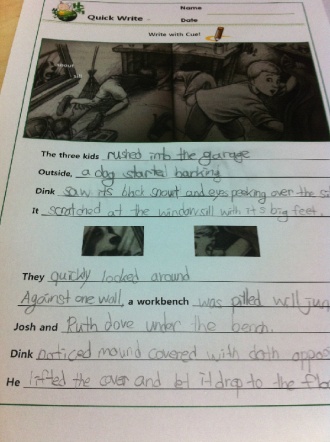 Quick Write -
Name
Date
Write with Cue!
snout
sill
The three kids rushed into the garage
Outside, a dog started barking
Dink saw its black snout and eyes peeking over the
It scratched at the window sill with it's big feet.
They quickly looked around
Against one wall, a workbench was pilled
Josh and Ruth dove under the bench.
Dink noticed mound covered with cloth
He lifted the cover and let it drop to the